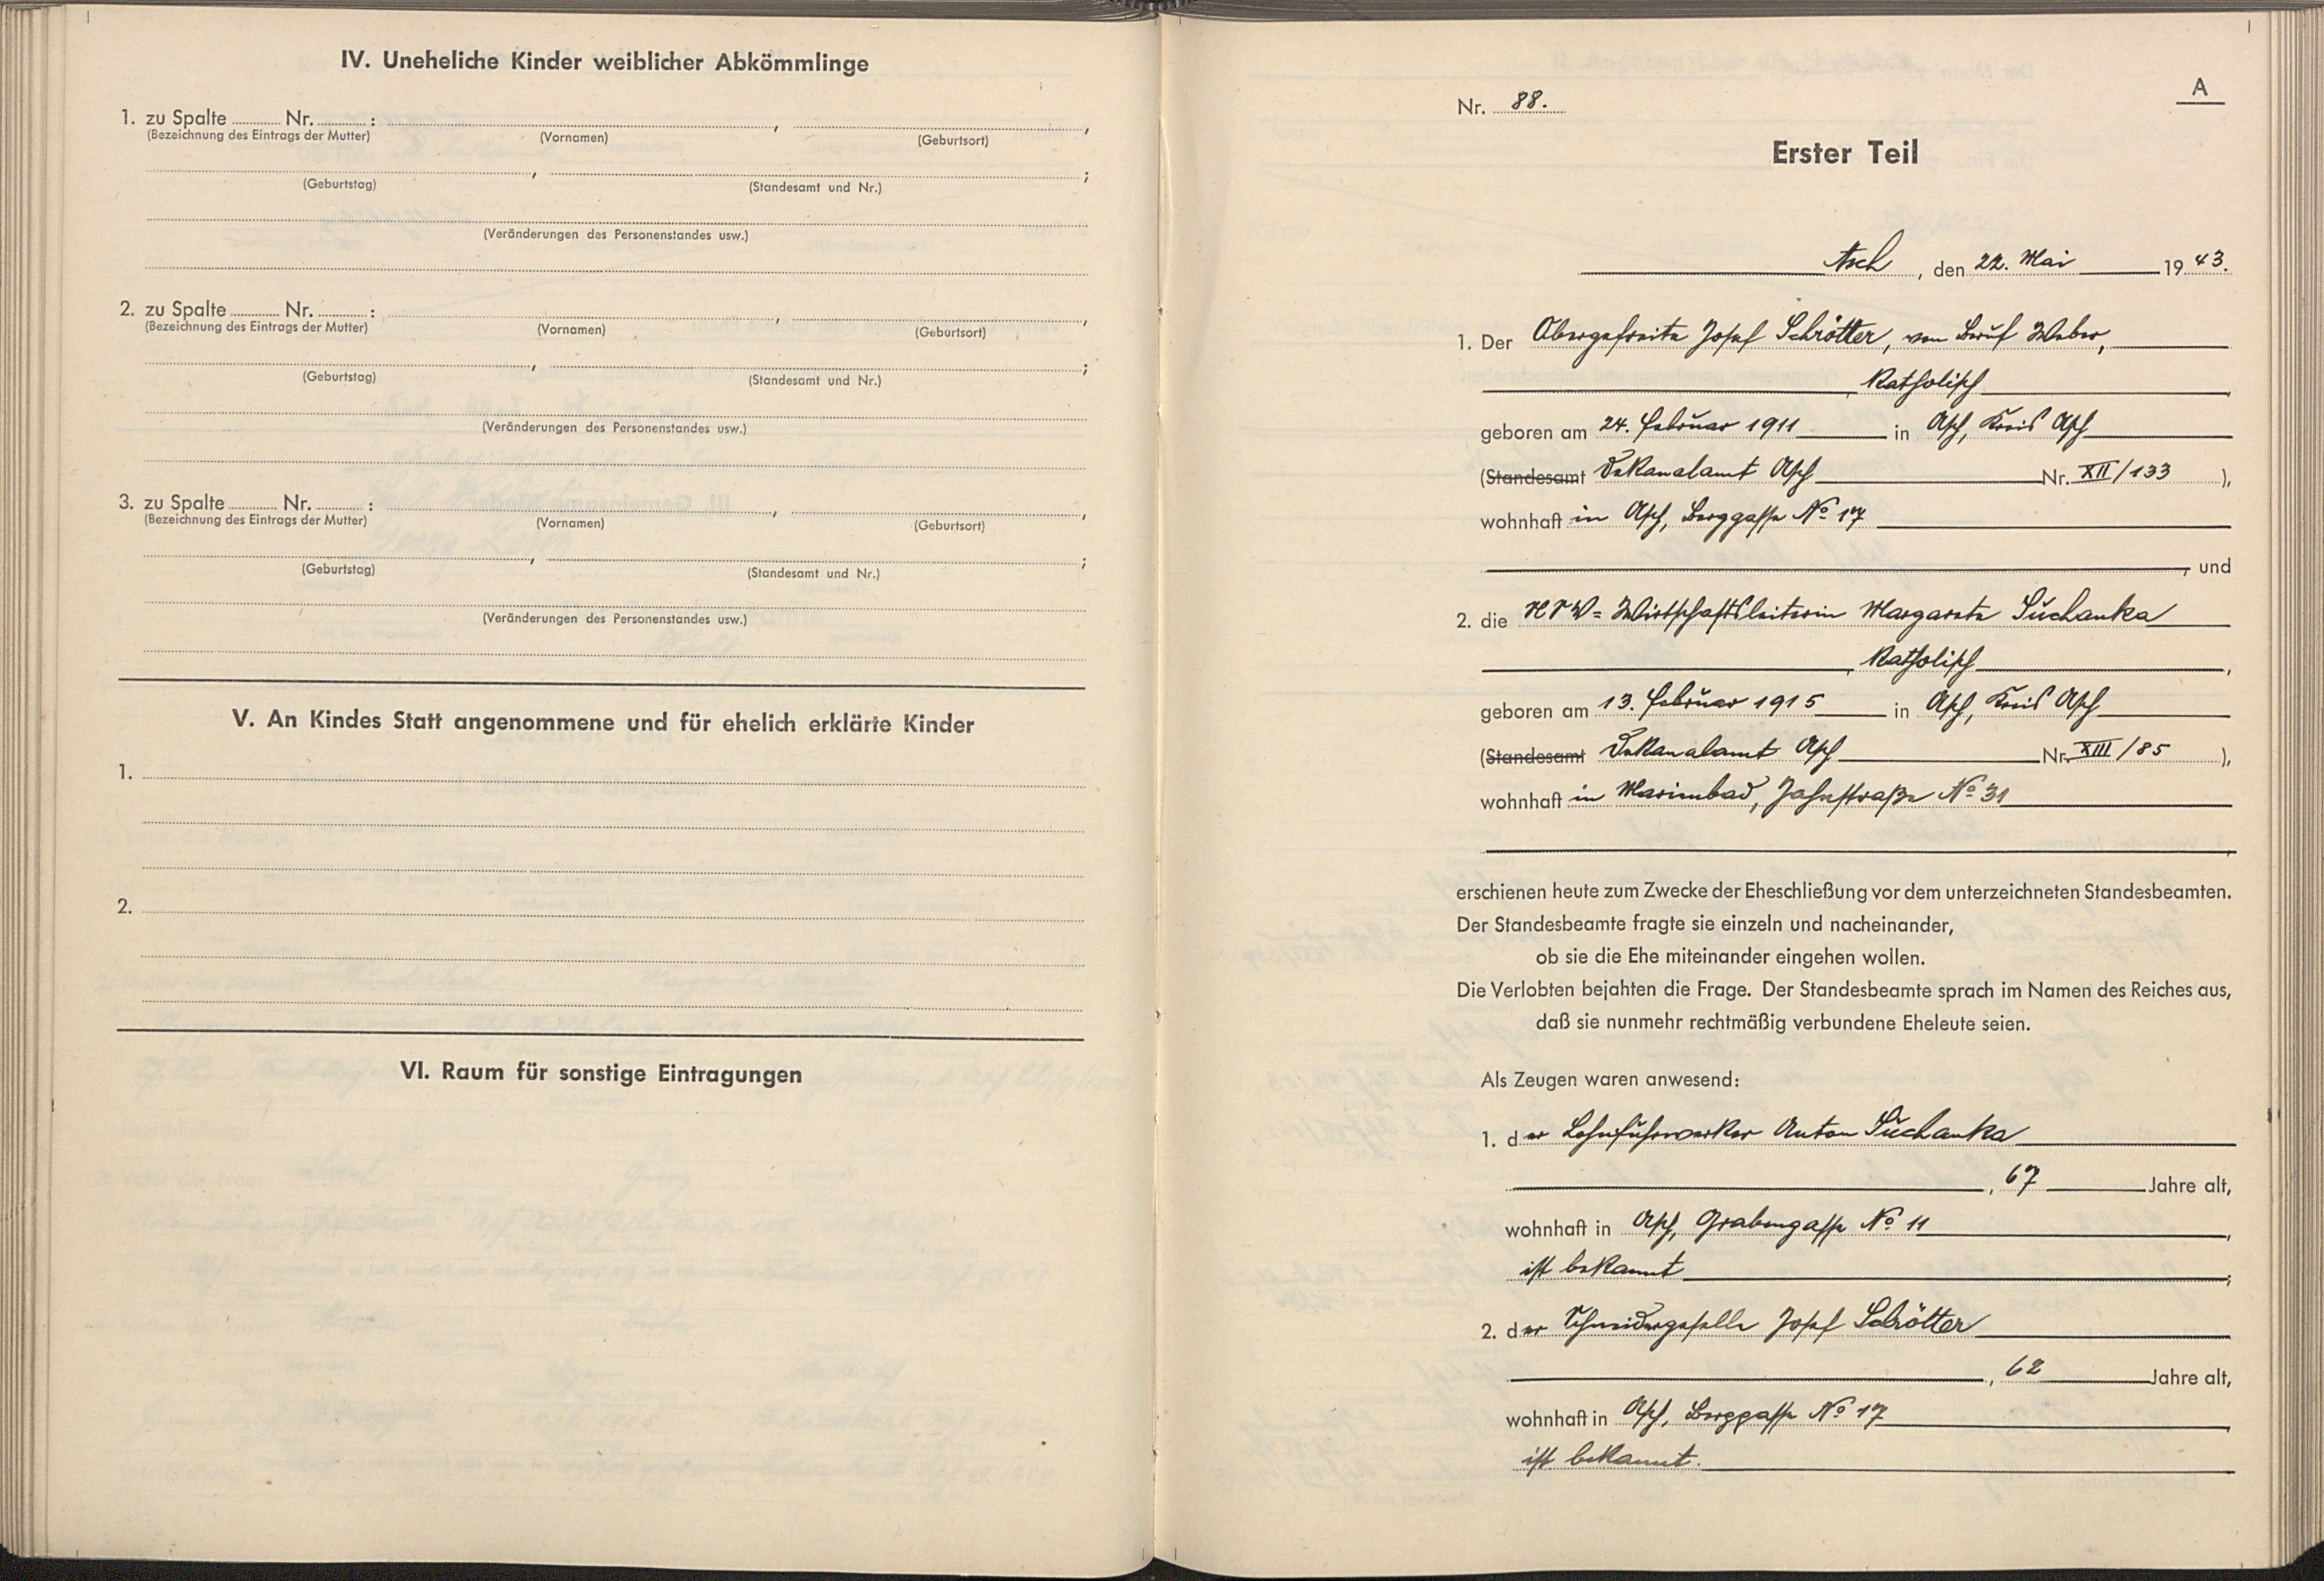 IV. Uneheliche Kinder weiblicher Abkömmlinge
1. zu Spalte Nr. : , ,
(Bezeichnung des Eintrags der Mutter) (Vornamen) (Geburtsort)
, ;
(Geburtstag) (Standesamt und Nr.)
(Veränderungen des Personenstandes usw.)
2. zu Spalte Nr. : , ,
(Bezeichnung des Eintrags der Mutter) (Vornamen) (Geburtsort)
, ;
(Geburtstag) (Standesamt und Nr.)
(Veränderungen des Personenstandes usw.)
3. zu Spalte Nr. : , ,
(Bezeichnung des Eintrags der Mutter) (Vornamen) (Geburtsort)
, ;
(Geburtstag) (Standesamt und Nr.)
(Veränderungen des Personenstandes usw.)
V. An Kindes Statt angenommene und für ehelich erklärte Kinder
1.
2.
VI. Raum für sonstige Eintragungen
A
Nr. 88.
Erster Teil
Asch, den 22. Mai 1943.
1. Der Obergefreite Josef Schrötter, von Beruf Weber,
, katholisch,
geboren am 24. Februar 1911 in Asch, Kreis Asch
(Standesamt Dekanalamt Asch Nr. XII/133),
wohnhaft in Asch, Berggasse No 17
, und
2. die NSV-Wirtschaftsleiterin Margarete Suchanka
, katholisch,
geboren am 13. Februar 1915 in Asch, Kreis Asch
(Standesamt Dekanalamt Asch Nr. XIII/85),
wohnhaft in Marienbad, Jahnstraße No 31
,
erschienen heute zum Zwecke der Eheschließung vor dem unterzeichneten Standesbeamten.
Der Standesbeamte fragte sie einzeln und nacheinander,
ob sie die Ehe miteinander eingehen wollen.
Die Verlobten bejahten die Frage. Der Standesbeamte sprach im Namen des Reiches aus,
daß sie nunmehr rechtmäßig verbundene Eheleute seien.
Als Zeugen waren anwesend:
1. der Lohnfuhrwerker Anton Suchanka
, 67 Jahre alt,
wohnhaft in Asch, Grabengasse No 11,
ist bekannt;
2. der Schneidergeselle Josef Schrötter
, 62 Jahre alt,
wohnhaft in Asch, Berggasse No 17,
ist bekannt.